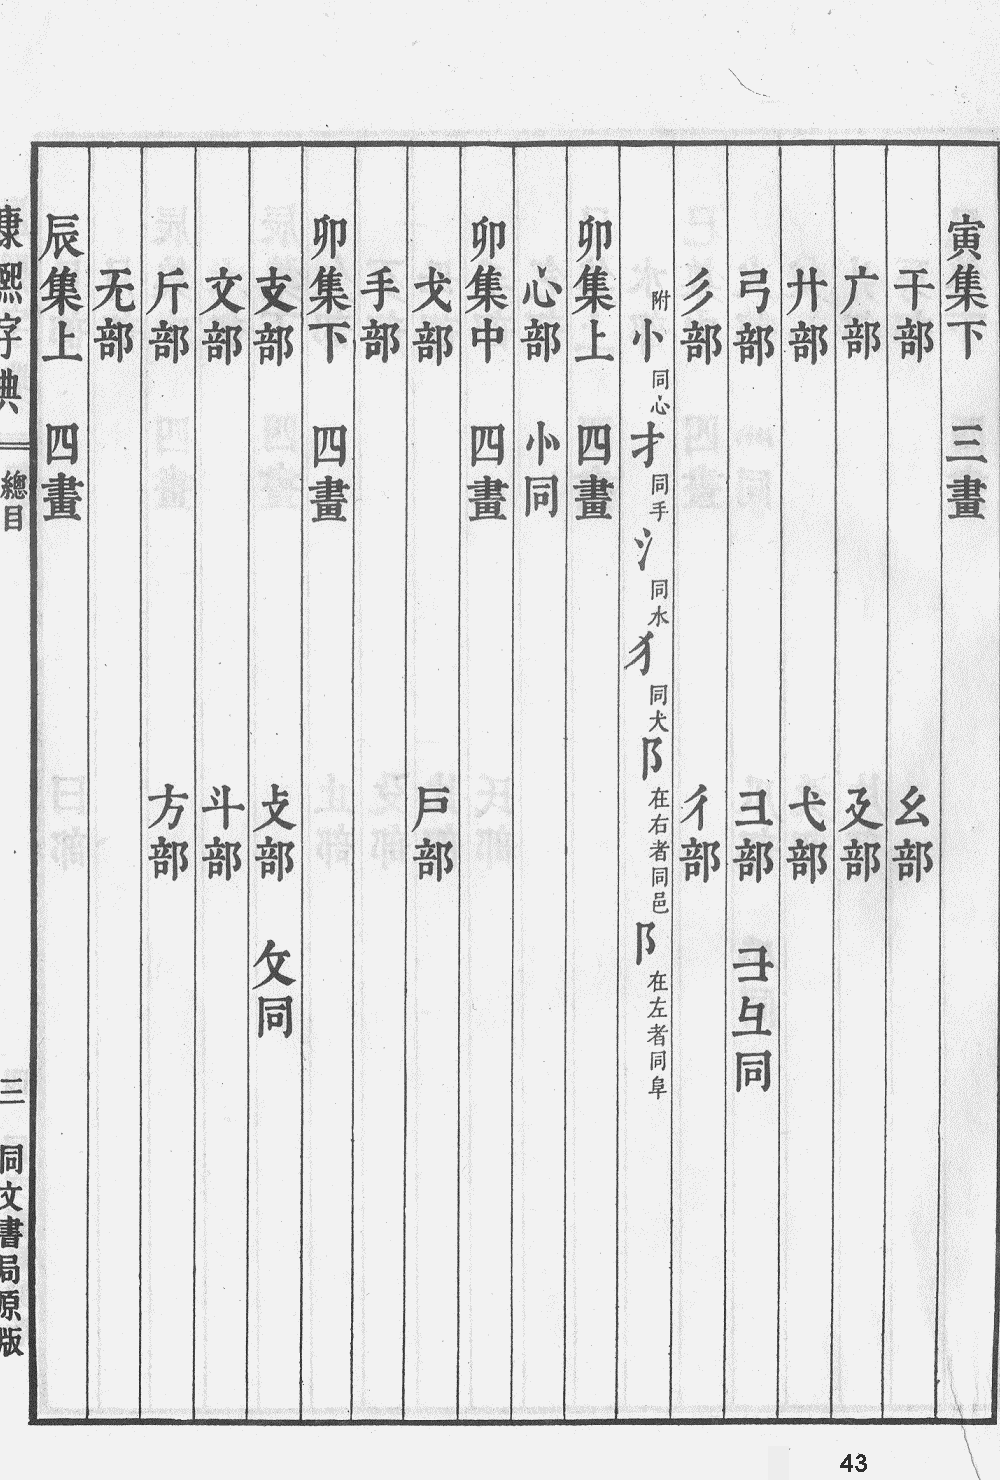 寅集下 三畫
干部 幺部
广部 廴部
廾部 弋部
弓部 彐部 彑同
彡部 彳部
附 小 同心 扌 同手 氵 同水 犭 同犬 阝 在右者同邑 阝 在左者同阜
卯集上 四畫
心部 㣺同
卯集中 四畫
戈部 戶部
手部
卯集下 四畫
支部 攴部 攵同
文部 斗部
斤部 方部
无部
辰集上 四畫
康熙字典 總目 三 同文書局原版
43